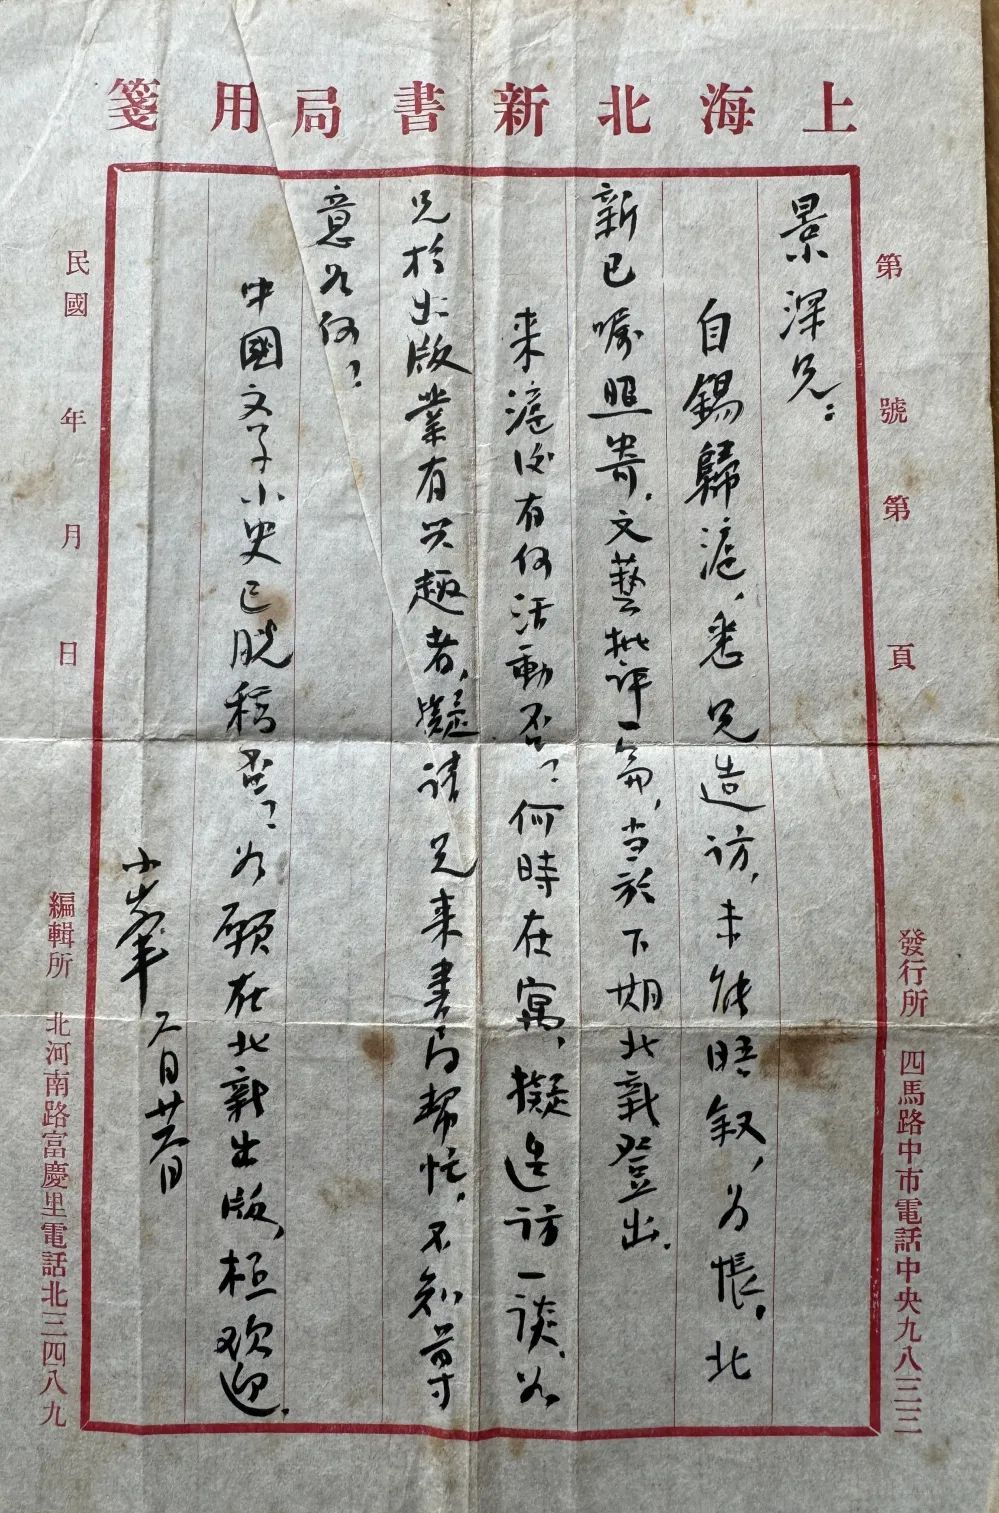 上海北新書局用箋
第　號第　頁
發行所　四馬路中市電話中央九八三三
景深兄：
自錫歸滬，悉兄造訪，未能晤叙，为悵。北
新已嘱照寄。文藝批评一篇，当於下期北新登出。
来滬後有何活動否？何時在寓，擬造访一谈。如
兄於出版業有兴趣者，擬请兄来書局帮忙。不知尊
意如何？
中國文学小史已脱稿否？如願在北新出版，極欢迎。
小峯　月廿日
民國　年　月　日
編輯所　北河南路富慶里電話北三四八九